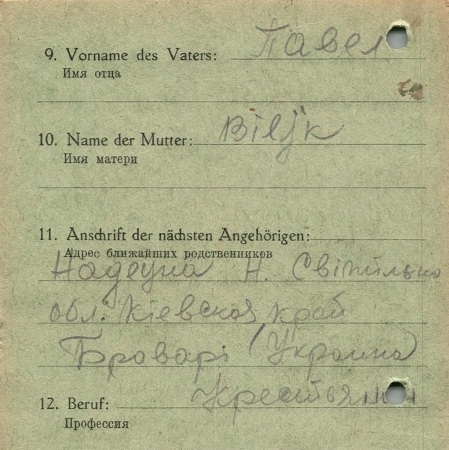 9. Vorname des Vaters: Павел
Имя отца
10. Name der Mutter: Biljk
Имя матери
11. Anschrift der nächsten Angehörigen:
Адрес ближайших родственников
Н. Світильно
обл. Кіевская край
Броварі (Украина)
12. Beruf: Крестьянин
Профессия